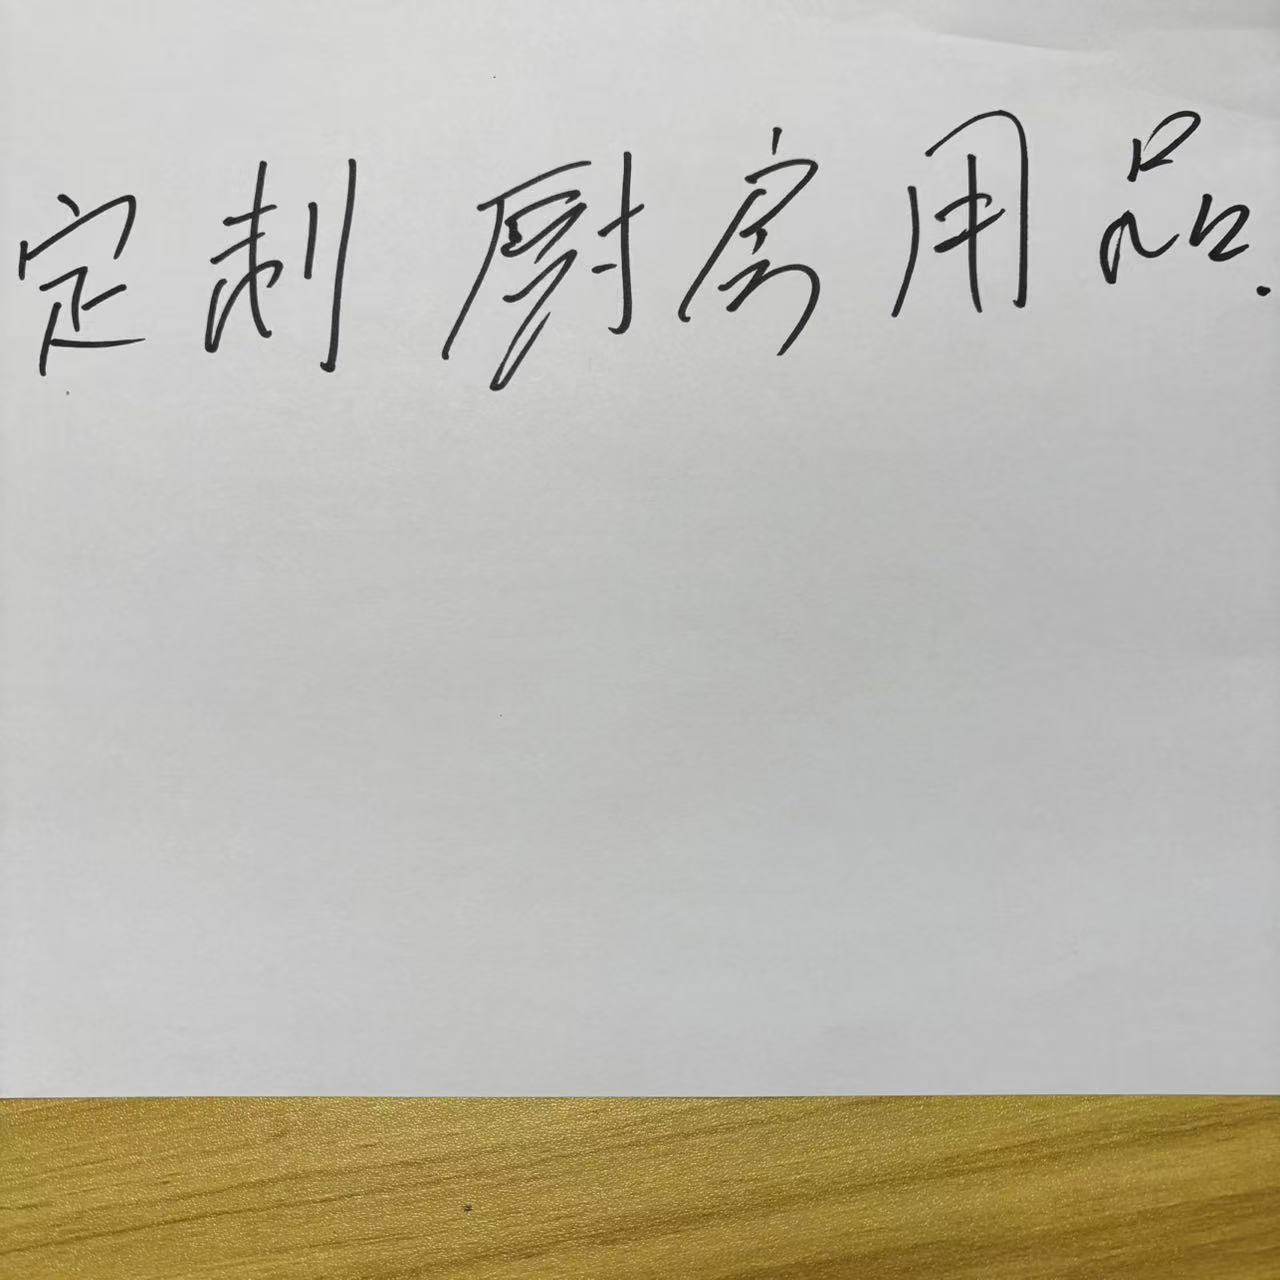 定制厨房用品.